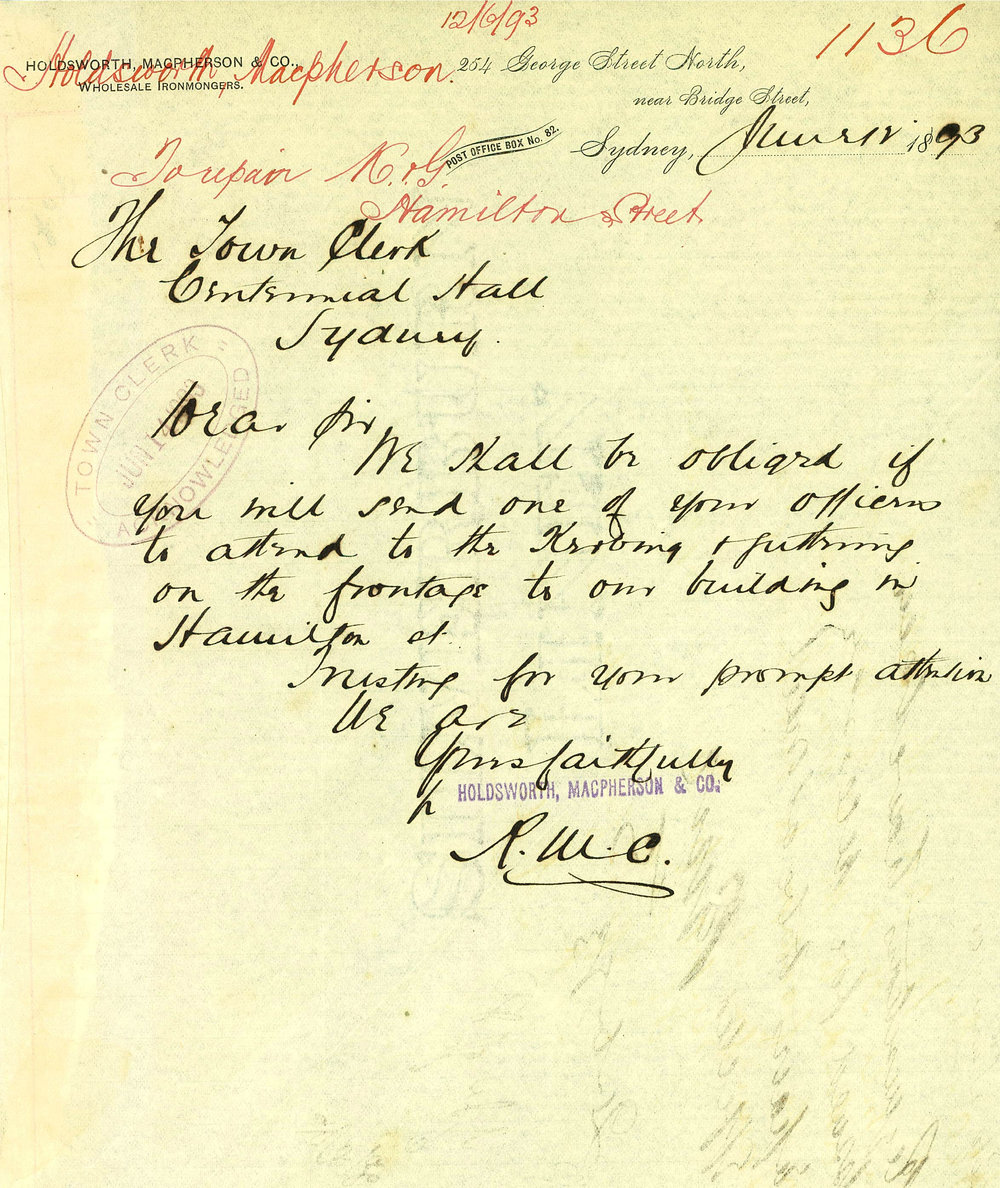 12/6/93
1136
HOLDSWORTH, MACPHERSON & CO.,
WHOLESALE IRONMONGERS.
Holdsworth, Macpherson.
254 George Street North,
near Bridge Street,
POST OFFICE BOX No. 82.
Sydney, June 12 1893
To repair K. & G.
Hamilton Street
The Town Clerk
Centennial Hall
Sydney.
TOWN CLERK
JUN 12 1893
ACKNOWLEDGED
Dear Sir
We shall be obliged if
you will send one of your officers
to attend to the Kerbing & guttering
on the frontage to our building in
Hamilton st.
Trusting for your prompt attention
We are
Yours faithfully
p HOLDSWORTH, MACPHERSON & CO.
R. M. C.